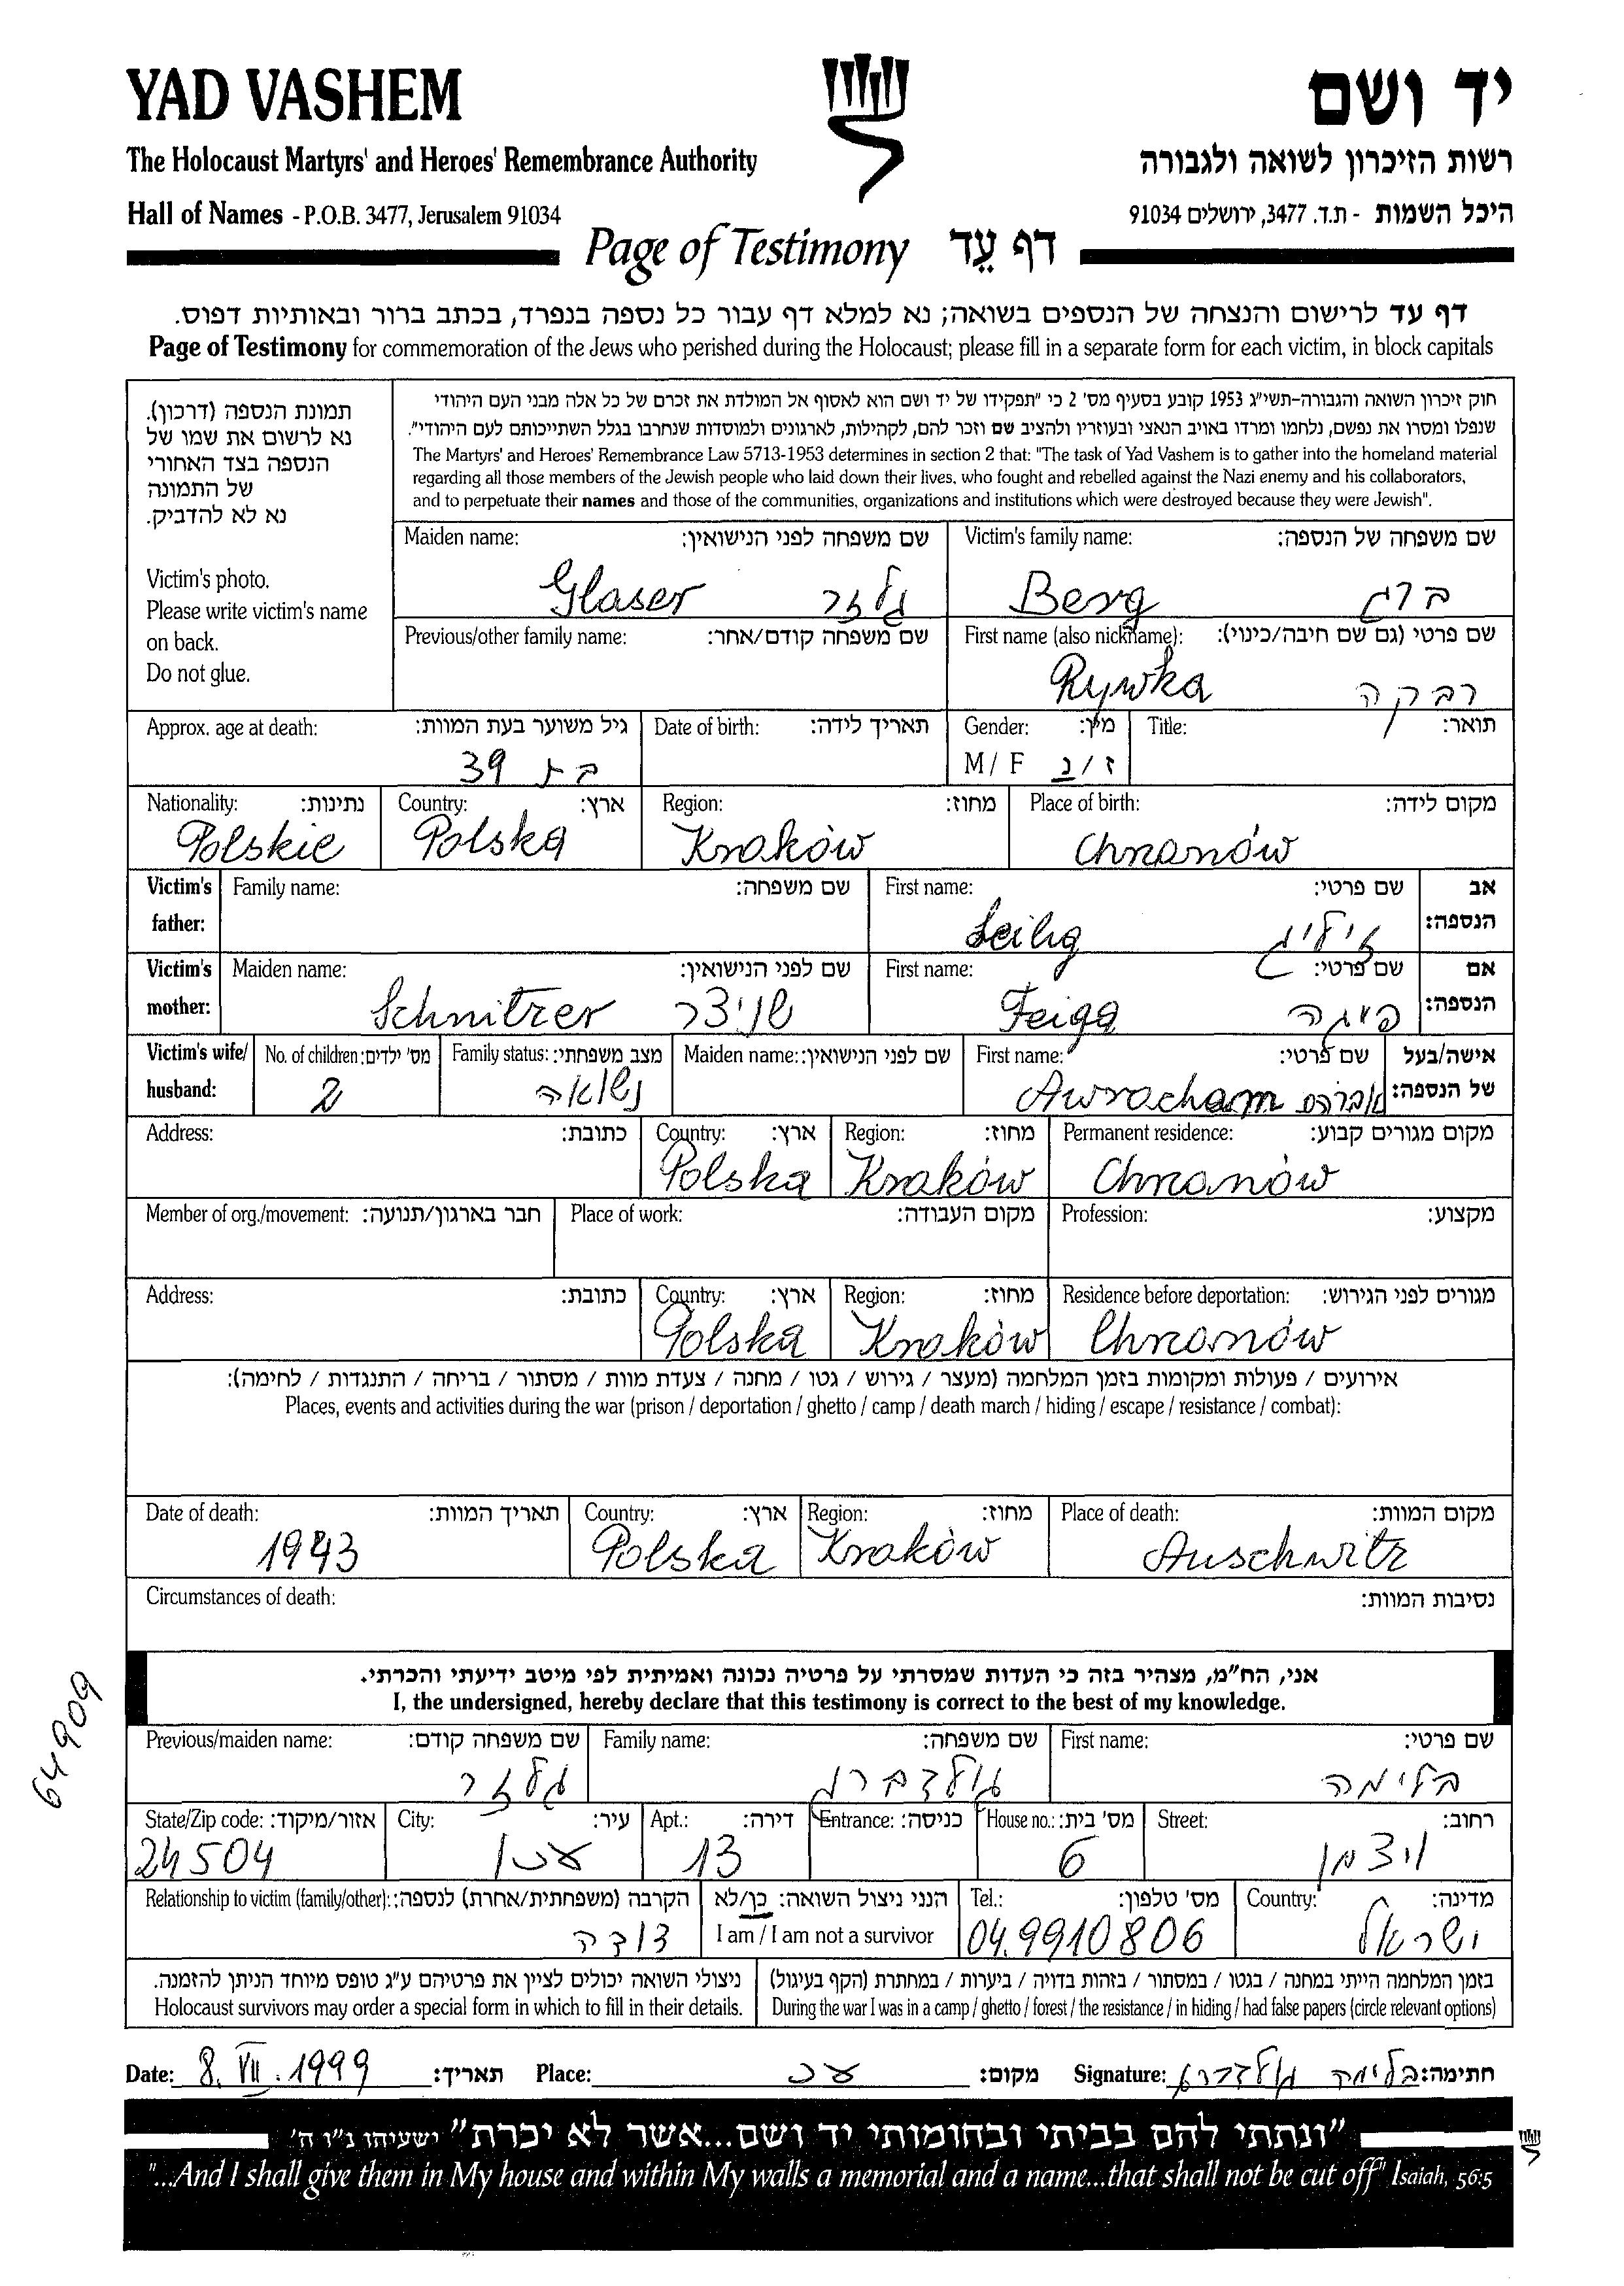 YAD VASHEM
יד ושם
The Holocaust Martyrs' and Heroes' Remembrance Authority
רשות הזיכרון לשואה ולגבורה
Hall of Names - P.O.B. 3477, Jerusalem 91034
היכל השמות - ת.ד. 3477, ירושלים 91034
Page of Testimony דף עֵד
דף עד לרישום והנצחה של הנספים בשואה; נא למלא דף עבור כל נספה בנפרד, בכתב ברור ובאותיות דפוס.
Page of Testimony for commemoration of the Jews who perished during the Holocaust; please fill in a separate form for each victim, in block capitals
תמונת הנספה (דרכון).
נא לרשום את שמו של
הנספה בצד האחורי
של התמונה
נא לא להדביק.
Victim's photo.
Please write victim's name
on back.
Do not glue.
חוק זיכרון השואה והגבורה-תשי"ג 1953 קובע בסעיף מס' 2 כי "תפקידו של יד ושם הוא לאסוף אל המולדת את זכרם של כל אלה מבני העם היהודי
שנפלו ומסרו את נפשם, נלחמו ומרדו באויב הנאצי ובעוזריו ולהציב שם וזכר להם, לקהילות, לארגונים ולמוסדות שנחרבו בגלל השתייכותם לעם היהודי".
The Martyrs' and Heroes' Remembrance Law 5713-1953 determines in section 2 that: "The task of Yad Vashem is to gather into the homeland material
regarding all those members of the Jewish people who laid down their lives, who fought and rebelled against the Nazi enemy and his collaborators,
and to perpetuate their names and those of the communities, organizations and institutions which were destroyed because they were Jewish".
Maiden name: שם משפחה לפני הנישואין:
Glaser גלזר
Victim's family name: שם משפחה של הנספה:
Berg ברג
Previous/other family name: שם משפחה קודם/אחר:
First name (also nickname): שם פרטי (גם שם חיבה/כינוי):
Rywka רבקה
Approx. age at death: גיל משוער בעת המוות:
בת 39
Date of birth: תאריך לידה:
Gender: מין:
M / F ז / נ
Title: תואר:
Nationality: נתינות:
Polskie
Country: ארץ:
Polska
Region: מחוז:
Kraków
Place of birth: מקום לידה:
Chrzanów
Victim's father:
Family name: שם משפחה:
First name: שם פרטי:
Seilig זיליג
אב הנספה:
Victim's mother:
Maiden name: שם לפני הנישואין:
Schnitzer שניצר
First name: שם פרטי:
Feiga פייגה
אם הנספה:
Victim's wife/ husband:
No. of children: מס' ילדים:
2
Family status: מצב משפחתי:
נשואה
Maiden name: שם לפני הנישואין:
First name: שם פרטי:
Awracham אברהם
אישה/בעל של הנספה:
Address: כתובת:
Country: ארץ:
Polska
Region: מחוז:
Kraków
Permanent residence: מקום מגורים קבוע:
Chrzanów
Member of org./movement: חבר בארגון/תנועה:
Place of work: מקום העבודה:
Profession: מקצוע:
Address: כתובת:
Country: ארץ:
Polska
Region: מחוז:
Kraków
Residence before deportation: מגורים לפני הגירוש:
Chrzanów
אירועים / פעולות ומקומות בזמן המלחמה (מעצר / גירוש / גטו / מחנה / צעדת מוות / מסתור / בריחה / התנגדות / לחימה):
Places, events and activities during the war (prison / deportation / ghetto / camp / death march / hiding / escape / resistance / combat):
Date of death: תאריך המוות:
1943
Country: ארץ:
Polska
Region: מחוז:
Kraków
Place of death: מקום המוות:
Auschwitz
Circumstances of death: נסיבות המוות:
64909
אני, הח"מ, מצהיר בזה כי העדות שמסרתי על פרטיה נכונה ואמיתית לפי מיטב ידיעתי והכרתי.
I, the undersigned, hereby declare that this testimony is correct to the best of my knowledge.
Previous/maiden name: שם משפחה קודם:
גלזר
Family name: שם משפחה:
גולדברג
First name: שם פרטי:
בלימה
State/Zip code: אזור/מיקוד:
24504
City: עיר:
עכו
Apt.: דירה:
13
Entrance: כניסה:
House no.: מס' בית:
6
Street: רחוב:
ויצמן
Relationship to victim (family/other): הקרבה (משפחתית/אחרת) לנספה:
דודה
הנני ניצול השואה: כן/לא
I am / I am not a survivor
Tel.: מס' טלפון:
04.9910806
Country: מדינה:
ישראל
ניצולי השואה יכולים לציין את פרטיהם ע"ג טופס מיוחד הניתן להזמנה.
Holocaust survivors may order a special form in which to fill in their details.
בזמן המלחמה הייתי במחנה / בגטו / במסתור / בזהות בדויה / ביערות / במחתרת (הקף בעיגול)
During the war I was in a camp / ghetto / forest / the resistance / in hiding / had false papers (circle relevant options)
Date: 8. VII. 1999 תאריך: Place: עכו מקום: Signature: בלימה גולדברג חתימה:
"ונתתי להם בביתי ובחומותי יד ושם...אשר לא יכרת" ישעיהו נ"ו ה'
"...And I shall give them in My house and within My walls a memorial and a name...that shall not be cut off" Isaiah, 56:5